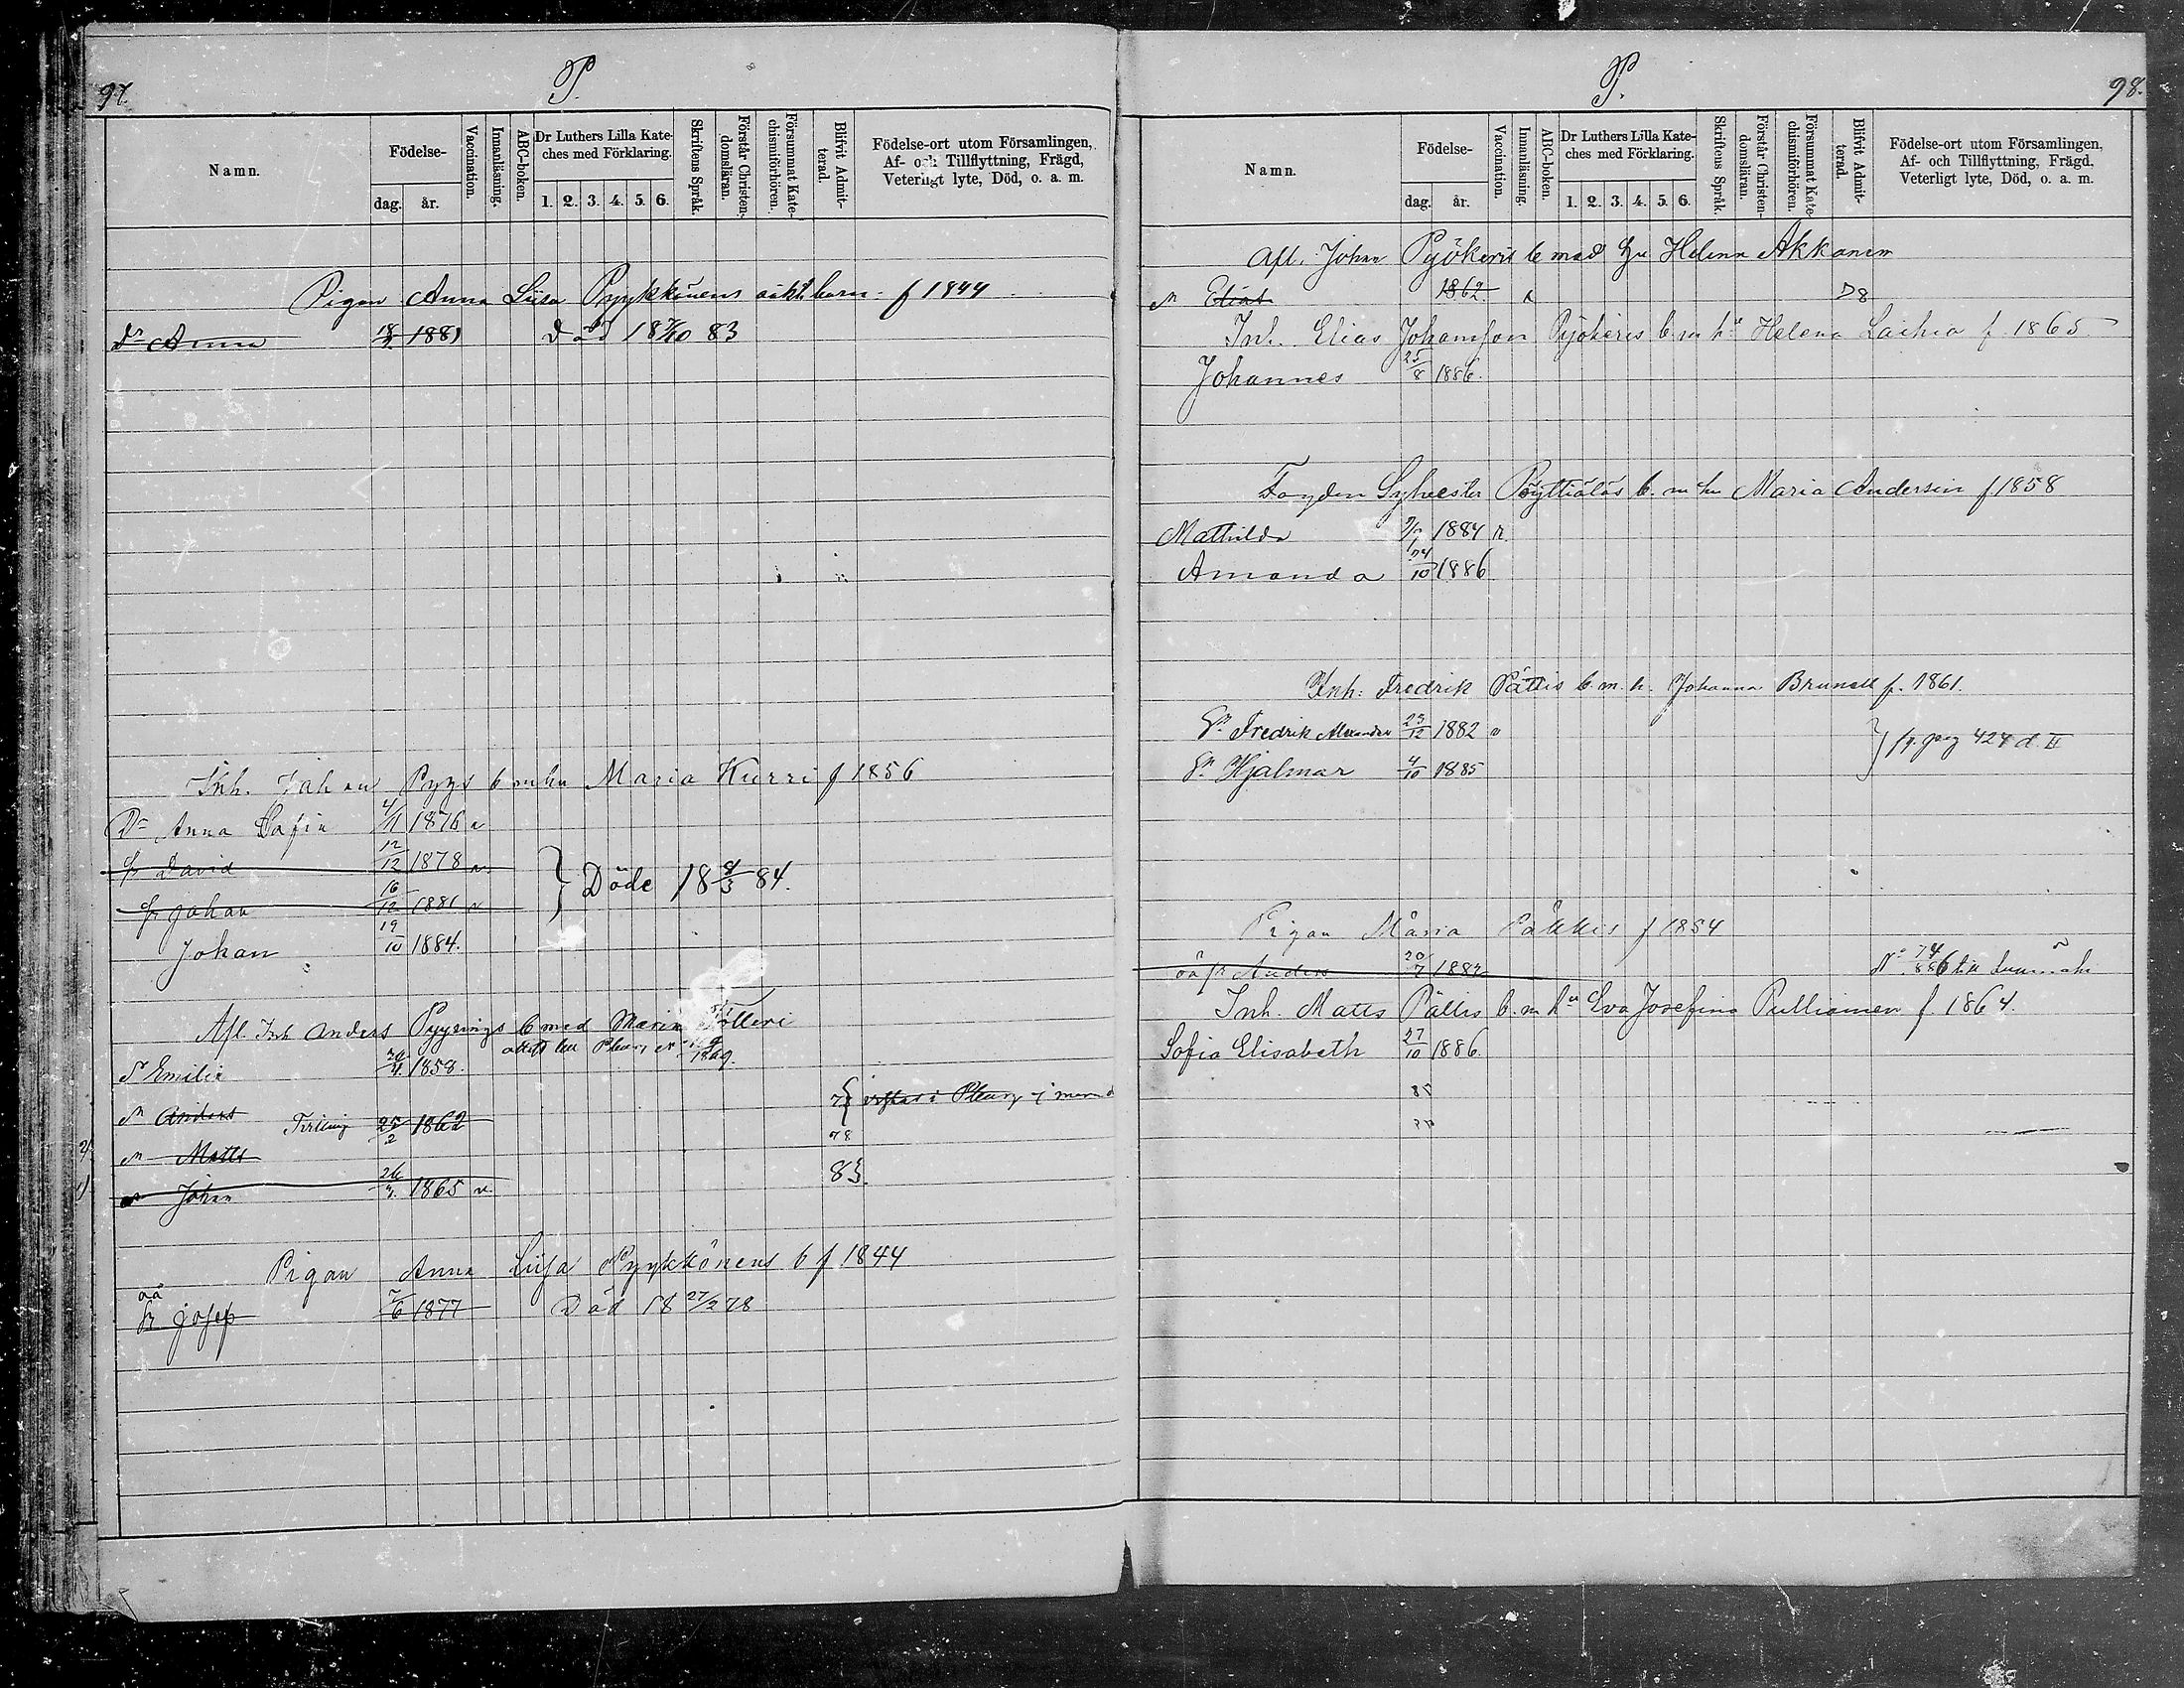 97.
P.
Namn.
Födelse-
dag.
år.
Vaccination.
Innanläsning.
ABC-boken.
Dr Luthers Lilla Kate-
ches med Förklaring.
1. 2. 3. 4. 5. 6.
Skriftens Språk.
Förstår Christen-
domsläran.
Försummat Kate-
chismiförhören.
Blifvit Admit-
terad.
Födelse-ort utom Församlingen,
Af- och Tillflyttning, Frägd,
Veterligt lyte, Död, o. a. m.
Pigan Anna Liisa Pyykkönens oäkt. barn f 1844
Dr Anna 1881 Död 18 7/10 83
Inh. Johan Pyys b m hu Maria Kurri f 1856
Dr Anna Sofia 4/11 1876 v
Gr David 12/12 1878 v
Gr Johan 16/12 1881 v
} Döde 18 8/3 84.
Johan 19/10 1884.
Afl. Inh Anders Pyyrings b med Maria Tölleri
Dr Emilia 1858.
Dr Anders Tvilling 25/2 1862 78
Dr Matts 78
Johan 1865 v. 83.
Pigan Anna Liisa Pyykkönens b f 1844
oä
Gr Josep 7/6 1877 Död 18 27/2 78
P.
98.
Namn.
Födelse-
dag.
år.
Vaccination.
Innanläsning.
ABC-boken.
Dr Luthers Lilla Kate-
ches med Förklaring.
1. 2. 3. 4. 5. 6.
Skriftens Språk.
Förstår Christen-
domsläran.
Försummat Kate-
chismiförhören.
Blifvit Admit-
terad.
Födelse-ort utom Församlingen,
Af- och Tillflyttning, Frägd.
Veterligt lyte, Död, o. a. m.
Afl. Johan Pyökeris b med hu Helena Akkanen
Elias 1862. 78
Inh. Elias Johansson Pyökeris b. m hu Helena Laihia f. 1865
Johannes 25/8 1886.
Sylvester Pöyttiäläs b. m hu Maria Andersin f 1858
Mathilda 1884
Amanda 24/10 1886
Inh: Fredrik Pättis b. m. h. Johanna Brunell f. 1861.
Gn Fredrik Alexander 23/12 1882 v
Gn Hjalmar 4/10 1885
} fr. pag 424 d. II
Pigan Maria f 1854
oä gr Anders 20/7 1882
Inh. Matts Pättis b. m hu Eva Josefina Pulliainen f. 1864.
Sofia Elisabeth 27/10 1886.